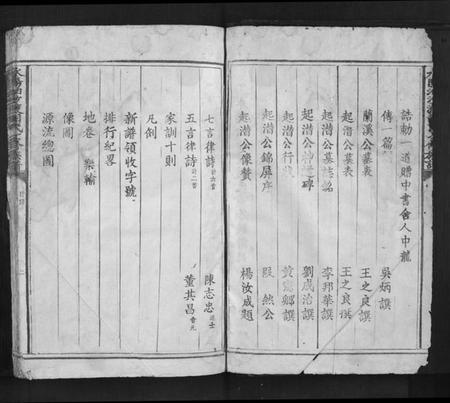 誥勅一道贈中書舍人中龍
傳一篇 吳炳譔
蘭溪公墓表 王之良譔
起潛公墓表 王之良譔
起潛公墓誌銘 李邦華譔
起潛公神道碑 劉威治譔
起潛公行狀 黃憲卿譔
起潛公錦屏序 殷然公
起潛公像贊 楊汝成題
七言律詩計六首 陳志忠進士
五言律詩計二首 董其昌會元
家訓十則
凡例
新譜領收字號
排行紀畧
地卷 樂輸
像圖
源流總圖